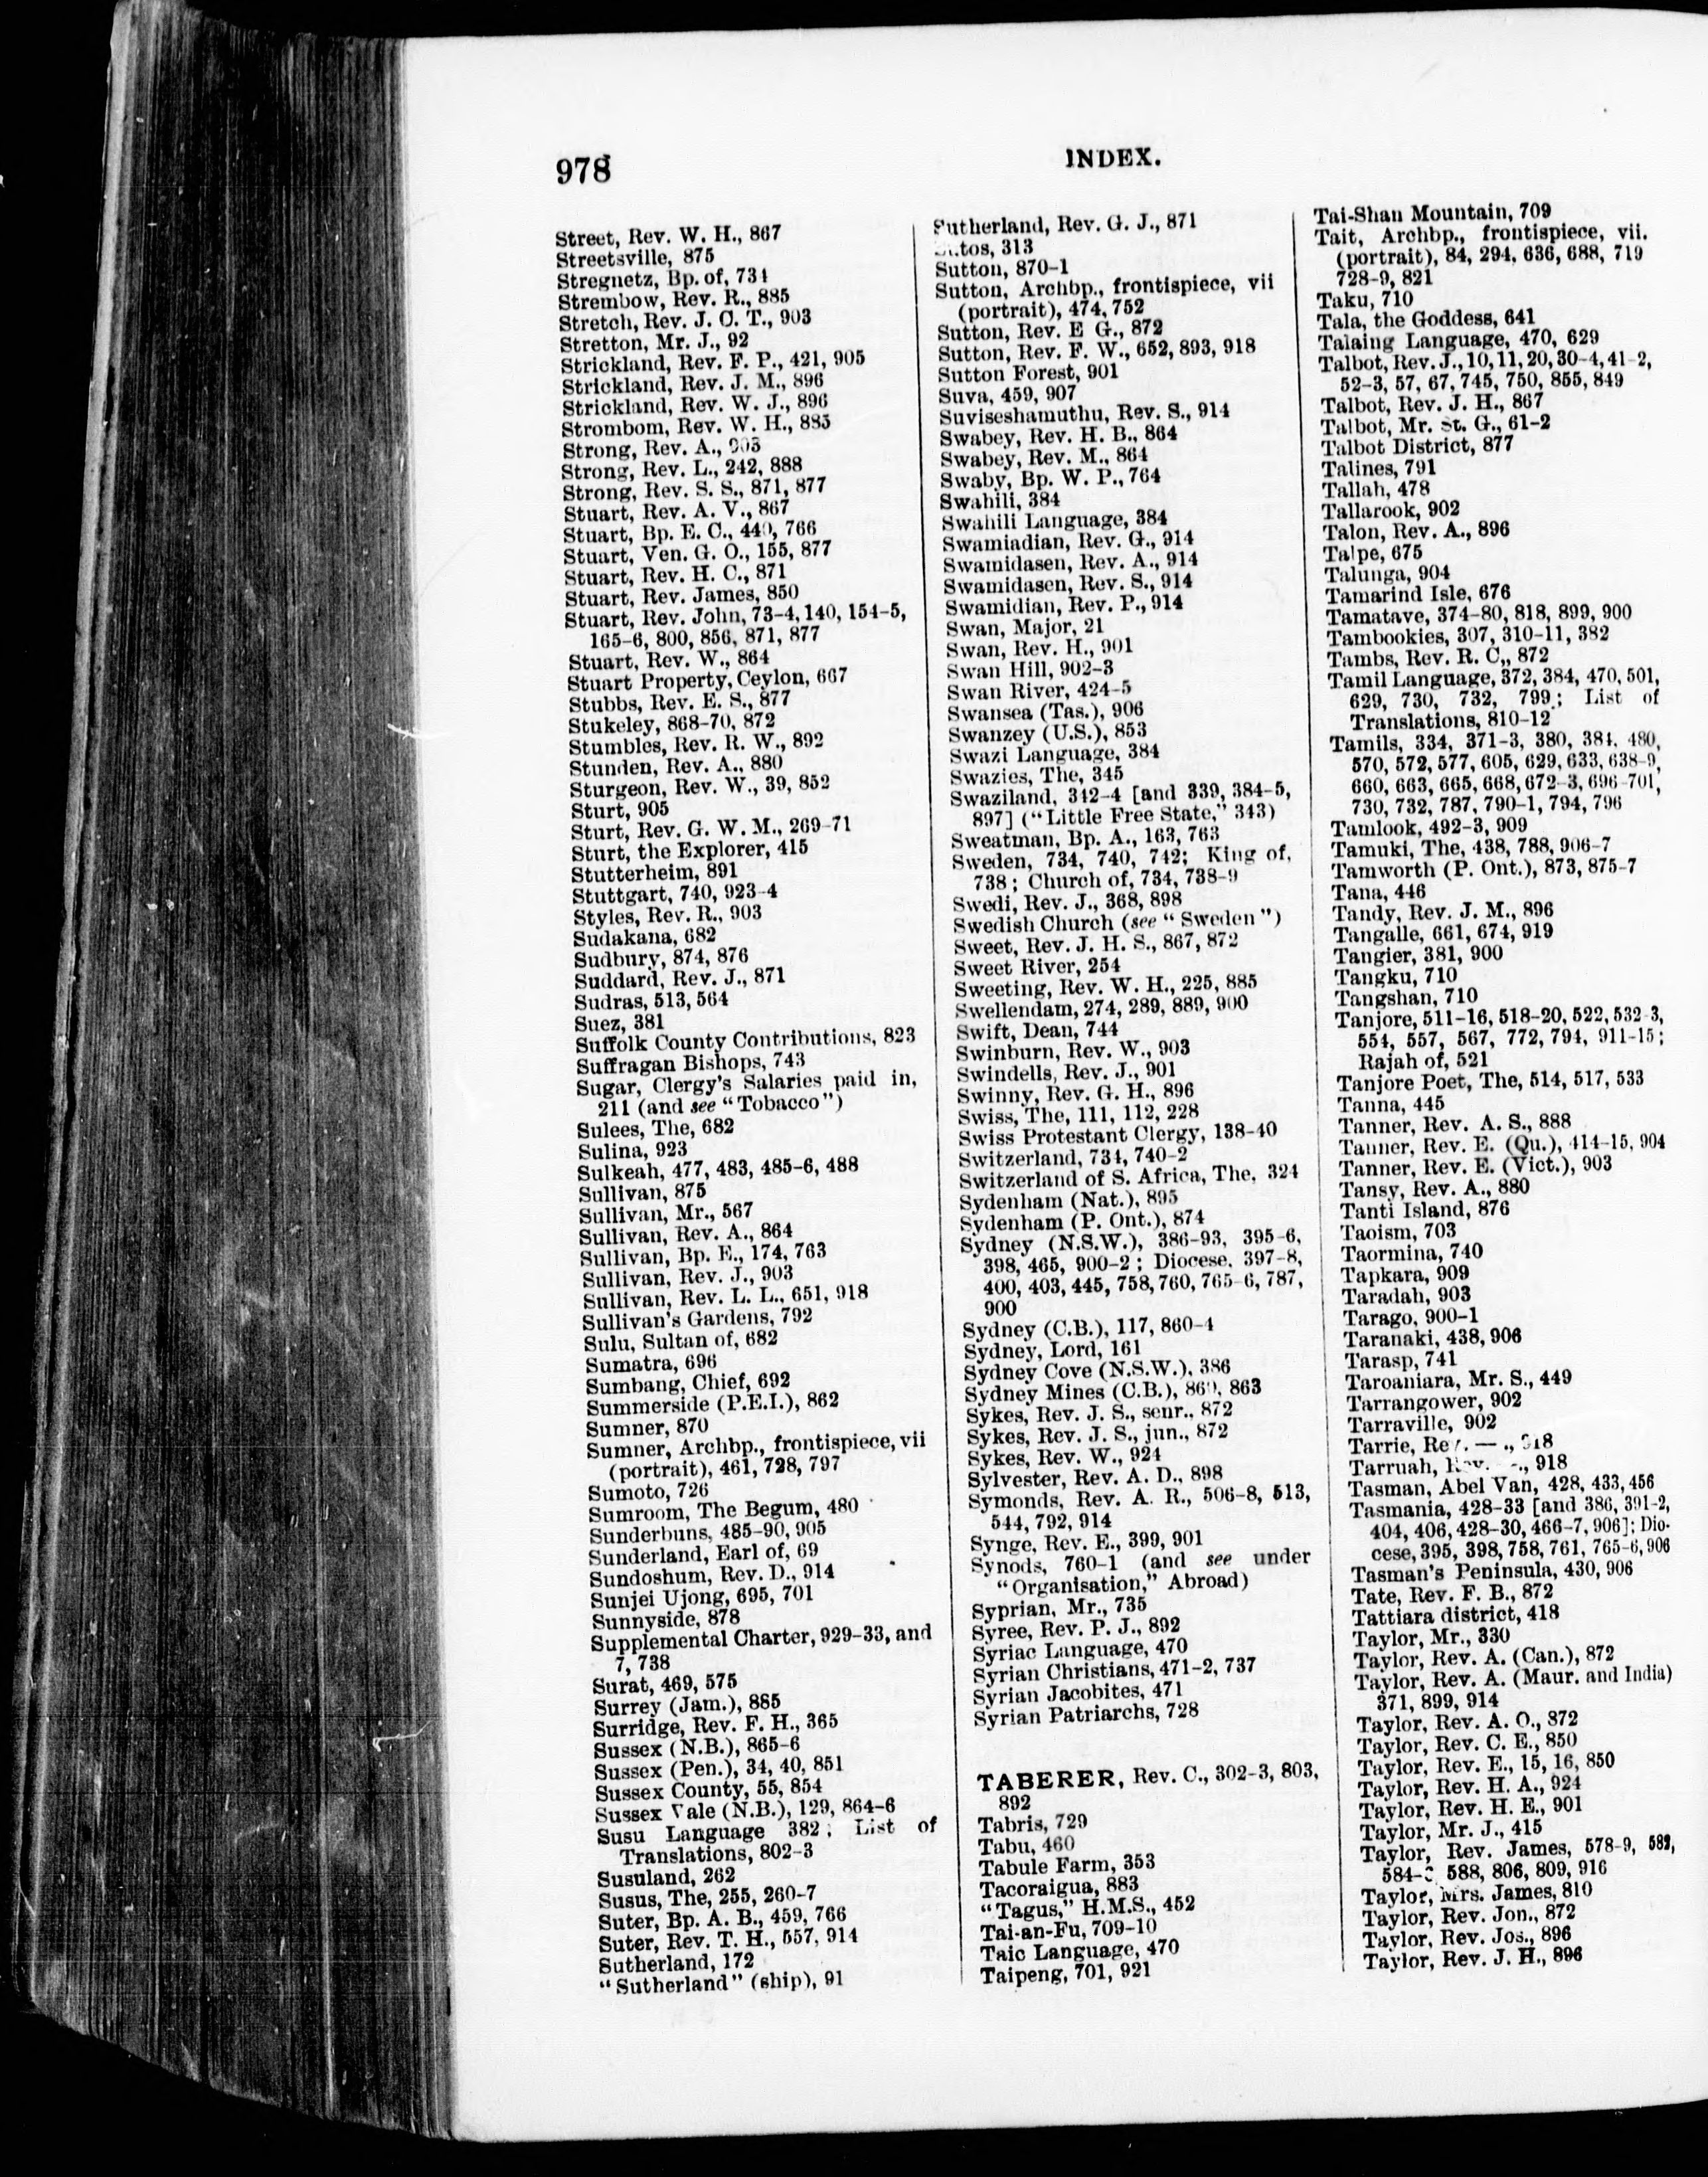 978
INDEX.
Street, Rev. W. H., 867
Streetsville, 875
Stregnetz, Bp. of, 734
Strembow, Rev. R., 885
Stretch, Rev. J. C. T., 903
Stretton, Mr. J., 92
Strickland, Rev. F. P., 421, 905
Strickland, Rev. J. M., 896
Strickland, Rev. W. J., 896
Strombom, Rev. W. H., 885
Strong, Rev. A.,
Strong, Rev. L., 242, 888
Strong, Rev. S. S., 871, 877
Stuart, Rev. A. V., 867
Stuart, Bp. E. C., 440, 766
Stuart, Ven. G. O., 155, 877
Stuart, Rev. H. C., 871
Stuart, Rev. James, 850
Stuart, Rev. John, 73-4, 140, 154-5,
165-6, 800, 856, 871, 877
Stuart, Rev. W., 864
Stuart Property, Ceylon, 667
Stubbs, Rev. E. S., 877
Stukeley, 868-70, 872
Stumbles, Rev. R. W., 892
Stunden, Rev. A., 880
Sturgeon, Rev. W., 39, 852
Sturt, 905
Sturt, Rev. G. W. M., 269-71
Sturt, the Explorer, 415
Stutterheim, 891
Stuttgart, 740, 923-4
Styles, Rev. R., 903
Sudakana, 682
Sudbury, 874, 876
Suddard, Rev. J., 871
Sudras, 513, 564
Suez, 381
Suffolk County Contributions, 823
Suffragan Bishops, 743
Sugar, Clergy's Salaries paid in,
211 (and see "Tobacco")
Sulees, The, 682
Sulina, 923
Sulkeah, 477, 483, 485-6, 488
Sullivan, 875
Sullivan, Mr., 567
Sullivan, Rev. A., 864
Sullivan, Bp. E., 174, 763
Sullivan, Rev. J., 903
Sullivan, Rev. L. L., 651, 918
Sullivan's Gardens, 792
Sulu, Sultan of, 682
Sumatra, 696
Sumbang, Chief, 692
Summerside (P.E.I.), 862
Sumner, 870
Sumner, Archbp., frontispiece, vii
(portrait), 461, 728, 797
Sumoto, 726
Sumroom, The Begum, 480
Sunderbuns, 485-90, 905
Sunderland, Earl of, 69
Sundoshum, Rev. D., 914
Sunjei Ujong, 695, 701
Sunnyside, 878
Supplemental Charter, 929-33, and
7, 738
Surat, 469, 575
Surrey (Jam.), 885
Surridge, Rev. F. H., 365
Sussex (N.B.), 865-6
Sussex (Pen.), 34, 40, 851
Sussex County, 55, 854
Sussex Vale (N.B.), 129, 864-6
Susu Language 382; List of
Translations, 802-3
Susuland, 262
Susus, The, 255, 260-7
Suter, Bp. A. B., 459, 766
Suter, Rev. T. H., 557, 914
Sutherland, 172
"Sutherland" (ship), 91
Sutherland, Rev. G. J., 871
313
Sutton, 870-1
Sutton, Archbp., frontispiece, vii
(portrait), 474, 752
Sutton, Rev. E G., 872
Sutton, Rev. F. W., 652, 893, 918
Sutton Forest, 901
Suva, 459, 907
Suviseshamuthu, Rev. S., 914
Swabey, Rev. H. B., 864
Swabey, Rev. M., 864
Swaby, Bp. W. P., 764
Swahili, 384
Swahili Language, 384
Swamiadian, Rev. G., 914
Swamidasen, Rev. A., 914
Swamidasen, Rev. S., 914
Swamidian, Rev. P., 914
Swan, Major, 21
Swan, Rev. H., 901
Swan Hill, 902-3
Swan River, 424-5
Swansea (Tas.), 906
Swanzey (U.S.), 853
Swazi Language, 384
Swazies, The, 345
Swaziland, 342-4 [and 339, 384-5,
897] ("Little Free State," 343)
Sweatman, Bp. A., 163, 763
Sweden, 734, 740, 742; King of,
738; Church of, 734, 738-9
Swedi, Rev. J., 368, 898
Swedish Church (see "Sweden")
Sweet, Rev. J. H. S., 867, 872
Sweet River, 254
Sweeting, Rev. W. H., 225, 885
Swellendam, 274, 289, 889, 900
Swift, Dean, 744
Swinburn, Rev. W., 903
Swindells, Rev. J., 901
Swinny, Rev. G. H., 896
Swiss, The, 111, 112, 228
Swiss Protestant Clergy, 138-40
Switzerland, 734, 740-2
Switzerland of S. Africa, The, 324
Sydenham (Nat.), 895
Sydenham (P. Ont.), 874
Sydney (N.S.W.), 386-93, 395-6,
398, 465, 900-2; Diocese, 397-8,
400, 403, 445, 758, 760, 765-6, 787,
900
Sydney (C.B.), 117, 860-4
Sydney, Lord, 161
Sydney Cove (N.S.W.), 386
Sydney Mines (C.B.), 860, 863
Sykes, Rev. J. S., senr., 872
Sykes, Rev. J. S., jun., 872
Sykes, Rev. W., 924
Sylvester, Rev. A. D., 898
Symonds, Rev. A. R., 506-8, 513,
544, 792, 914
Synge, Rev. E., 399, 901
Synods, 760-1 (and see under
"Organisation," Abroad)
Syprian, Mr., 735
Syree, Rev. P. J., 892
Syriac Language, 470
Syrian Christians, 471-2, 737
Syrian Jacobites, 471
Syrian Patriarchs, 728
TABERER, Rev. C., 302-3, 803,
892
Tabris, 729
Tabu, 460
Tabule Farm, 353
Tacoraigua, 883
"Tagus," H.M.S., 452
Tai-an-Fu, 709-10
Taic Language, 470
Taipeng, 701, 921
Tai-Shan Mountain, 709
Tait, Archbp., frontispiece, vii.
(portrait), 84, 294, 636, 688, 719
728-9, 821
Taku, 710
Tala, the Goddess, 641
Talaing Language, 470, 629
Talbot, Rev. J., 10, 11, 20, 30-4, 41-2,
52-3, 57, 67, 745, 750, 855, 849
Talbot, Rev. J. H., 867
Talbot, Mr. St. G., 61-2
Talbot District, 877
Talines, 791
Tallah, 478
Tallarook, 902
Talon, Rev. A., 896
Talpe, 675
Talunga, 904
Tamarind Isle, 676
Tamatave, 374-80, 818, 899, 900
Tambookies, 307, 310-11, 382
Tambs, Rev. R. C,, 872
Tamil Language, 372, 384, 470, 501,
629, 730, 732, 799; List of
Translations, 810-12
Tamils, 334, 371-3, 380, 384, 480,
570, 572, 577, 605, 629, 633, 638-9,
660, 663, 665, 668, 672-3, 696-701,
730, 732, 787, 790-1, 794, 796
Tamlook, 492-3, 909
Tamuki, The, 438, 788, 906-7
Tamworth (P. Ont.), 873, 875-7
Tana, 446
Tandy, Rev. J. M., 896
Tangalle, 661, 674, 919
Tangier, 381, 900
Tangku, 710
Tangshan, 710
Tanjore, 511-16, 518-20, 522, 532-3,
554, 557, 567, 772, 794, 911-15;
Rajah of, 521
Tanjore Poet, The, 514, 517, 533
Tanna, 445
Tanner, Rev. A. S., 888
Tanner, Rev. E. (Qu.), 414-15, 904
Tanner, Rev. E. (Vict.), 903
Tansy, Rev. A., 880
Tanti Island, 876
Taoism, 703
Taormina, 740
Tapkara, 909
Taradah, 903
Tarago, 900-1
Taranaki, 438, 906
Tarasp, 741
Taroaniara, Mr. S., 449
Tarrangower, 902
Tarraville, 902
Tarrie, Rev. — .,
Tarruah, 918
Tasman, Abel Van, 428, 433, 456
Tasmania, 428-33 [and 386, 391-2,
404, 406, 428-30, 466-7, 906]; Dio-
cese, 395, 398, 758, 761, 765-6, 906
Tasman's Peninsula, 430, 906
Tate, Rev. F. B., 872
Tattiara district, 418
Taylor, Mr., 330
Taylor, Rev. A. (Can.), 872
Taylor, Rev. A. (Maur. and India)
371, 899, 914
Taylor, Rev. A. O., 872
Taylor, Rev. C. E., 850
Taylor, Rev. E., 15, 16, 850
Taylor, Rev. H. A., 924
Taylor, Rev. H. E., 901
Taylor, Mr. J., 415
Taylor, Rev. James, 578-9, 582,
588, 806, 809, 916
Taylor, Mrs. James, 810
Taylor, Rev. Jon., 872
Taylor, Rev. Jos., 896
Taylor, Rev. J. H., 896